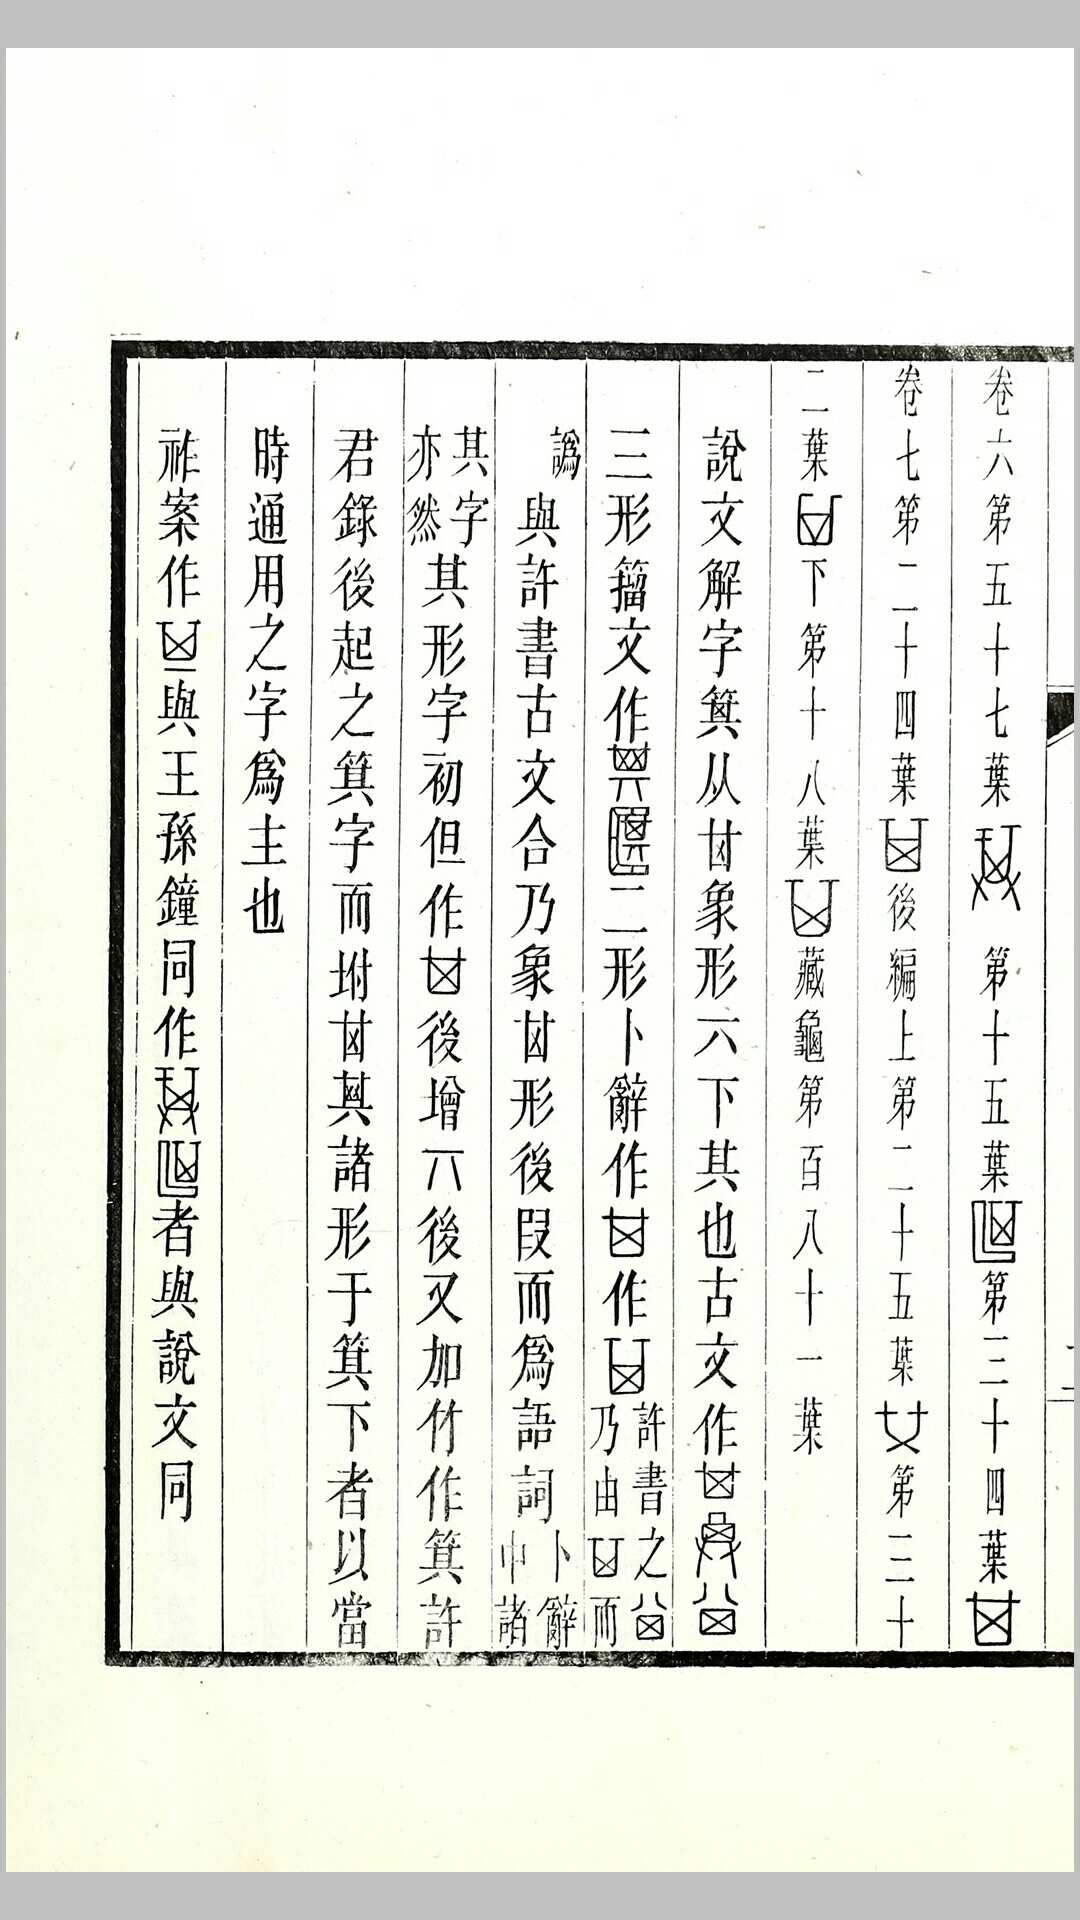 卷六第五十七葉 第十五葉 第三十四葉
卷七第二十四葉 後編上第二十五葉 第三十
二葉 下第十八葉 藏龜第百八十一葉
說文解字箕从𠀠象形六下其也古文作
三形籀文作 二形卜辭作 作 許書之 乃由 而
譌 與許書古文合乃象𠀠形後叚而爲語詞卜辭中諸
其字亦然其形字初但作𠀠後增丌後又加竹作箕許
君錄後起之箕字而坿𠀠其諸形于箕下者以當
時通用之字爲主也
祚案作 與王孫鐘同作 者與說文同